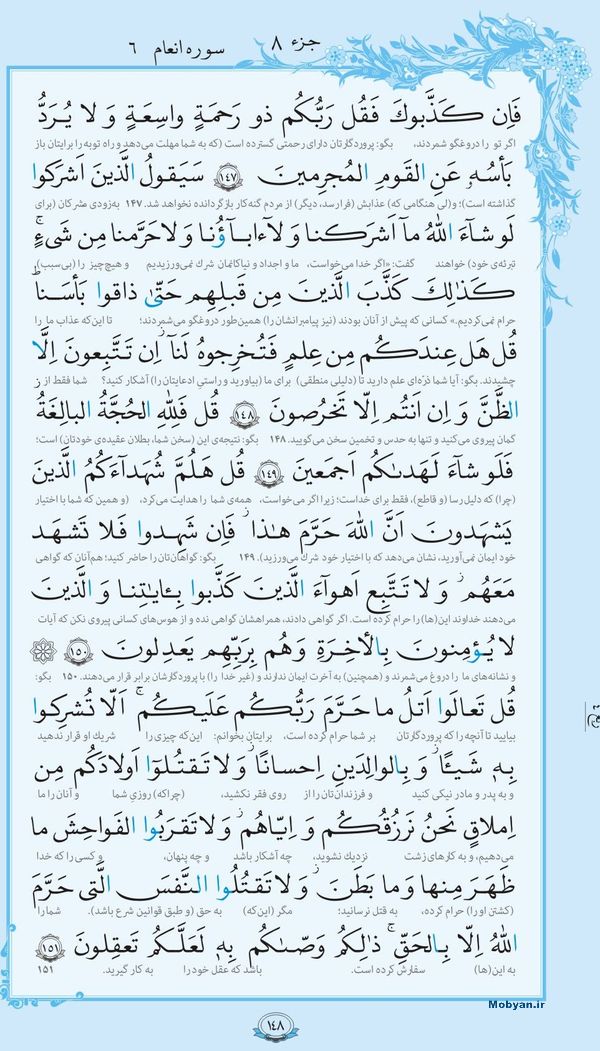 جزء ۸
سوره انعام ۶
فَاِن كَذَّبوكَ فَقُل رَبُّكُم ذو رَحمَةٍ واسِعَةٍ وَ لا يُرَدُّ
اگر تو را دروغگو شمردند، بگو: پروردگارتان دارای رحمتی گسترده است (که به شما مهلت می‌دهد و راه توبه را برایتان باز
بَأسُهُ عَنِ القَومِ المُجرِمينَ ۱۴۷ سَيَقولُ الَّذينَ اَشرَكوا
گذاشته است)؛ و (لی هنگامی که) عذابش (فرارسد، دیگر) از مردم گنه‌کار بازگردانده نخواهد شد. ۱۴۷ به‌زودی مشرکان (برای
لَو شاءَ اللهُ ما اَشرَكنا وَ لا ءاباؤُنا وَ لا حَرَّمنا مِن شَىءٍ
تبرئه‌ی خود) خواهند گفت: «اگر خدا می‌خواست، ما و اجداد و نیاکانمان شرك نمی‌ورزیدیم و هیچ چیز را (بی‌سبب)
كَذٰلِكَ كَذَّبَ الَّذينَ مِن قَبلِهِم حَتّىٰ ذاقوا بَأسَنا
حرام نمی‌کردیم.» کسانی که پیش از آنان بودند (نیز پیامبرانشان را) همین‌طور دروغگو می‌شمردند؛ تا این‌که عذاب ما را
قُل هَل عِندَكُم مِن عِلمٍ فَتُخرِجوهُ لَنا اِن تَتَّبِعونَ اِلَّا
چشیدند. بگو: آیا شما ذرّه‌ای علم دارید تا (دلیلی منطقی) برای ما (بیاورید و راستیِ ادعایتان را) آشکار کنید؟ شما فقط از
الظَّنَّ وَ اِن اَنتُم اِلّا تَخرُصونَ ۱۴۸ قُل فَلِلّٰهِ الحُجَّةُ البالِغَةُ
گمان پیروی می‌کنید و تنها به حدس و تخمین سخن می‌گویید. ۱۴۸ بگو: نتیجه‌ی این (سخن شما، بطلان عقیده‌ی خودتان) است؛
فَلَو شاءَ لَهَدىٰكُم اَجمَعينَ ۱۴۹ قُل هَلُمَّ شُهَداءَكُمُ الَّذينَ
(چرا) که دلیل رسا (و قاطع)، فقط برای خداست؛ زیرا اگر می‌خواست، همه‌ی شما را هدایت می‌کرد، (و همین که شما با اختیار
يَشهَدونَ اَنَّ اللهَ حَرَّمَ هٰذا فَاِن شَهِدوا فَلا تَشهَد
خود ایمان نمی‌آورید، نشان می‌دهد که با اختیار خود شرك می‌ورزید). ۱۴۹ بگو: گواهان‌تان را حاضر کنید؛ هم‌آنان که گواهی
مَعَهُم وَ لا تَتَّبِع اَهواءَ الَّذينَ كَذَّبوا بِـٔاياتِنا وَ الَّذينَ
می‌دهند خداوند این(ها) را حرام کرده است. اگر گواهی دادند، همراهشان گواهی نده و از هوس‌های کسانی پیروی نکن که آیات
لا يُؤمِنونَ بِالأخِرَةِ وَ هُم بِرَبِّهِم يَعدِلونَ ۱۵۰
و نشانه‌های ما را دروغ می‌شمرند و (همچنین) به آخرت ایمان ندارند و (غیر خدا را) با پروردگارشان برابر قرار می‌دهند. ۱۵۰ بگو:
قُل تَعالَوا اَتلُ ما حَرَّمَ رَبُّكُم عَلَيكُم اَلّا تُشرِكوا
بیایید تا آنچه را که پروردگارتان بر شما حرام کرده است، برایتان بخوانم: این‌که چیزی را شریك او قرار ندهید
بِهِ شَيـًٔا وَ بِالوالِدَينِ اِحسانًا وَ لا تَقتُلوا اَولادَكُم مِن
و به پدر و مادر نیکی کنید و فرزندان‌تان را از روی فقر نکشید، (چراکه) روزیِ شما و آنان را ما
اِملاقٍ نَحنُ نَرزُقُكُم وَ اِيّاهُم وَ لا تَقرَبُوا الفَواحِشَ ما
می‌دهیم، و به کارهای زشت نزدیك نشوید، چه آشکار باشد و چه پنهان، و کسی را که خدا
ظَهَرَ مِنها وَ ما بَطَنَ وَ لا تَقتُلُوا النَّفسَ الَّتى حَرَّمَ
(کشتن او را) حرام کرده، به قتل نرسانید؛ مگر (این‌که) به حق (و طبق قوانین شرع باشد). شما را
اللهُ اِلّا بِالحَقِّ ذٰلِكُم وَصّىٰكُم بِهِ لَعَلَّكُم تَعقِلونَ ۱۵۱
به این(ها) سفارش کرده است. باشد که عقل خود را به کار گیرید. ۱۵۱
Mobyan.ir
۱۴۸